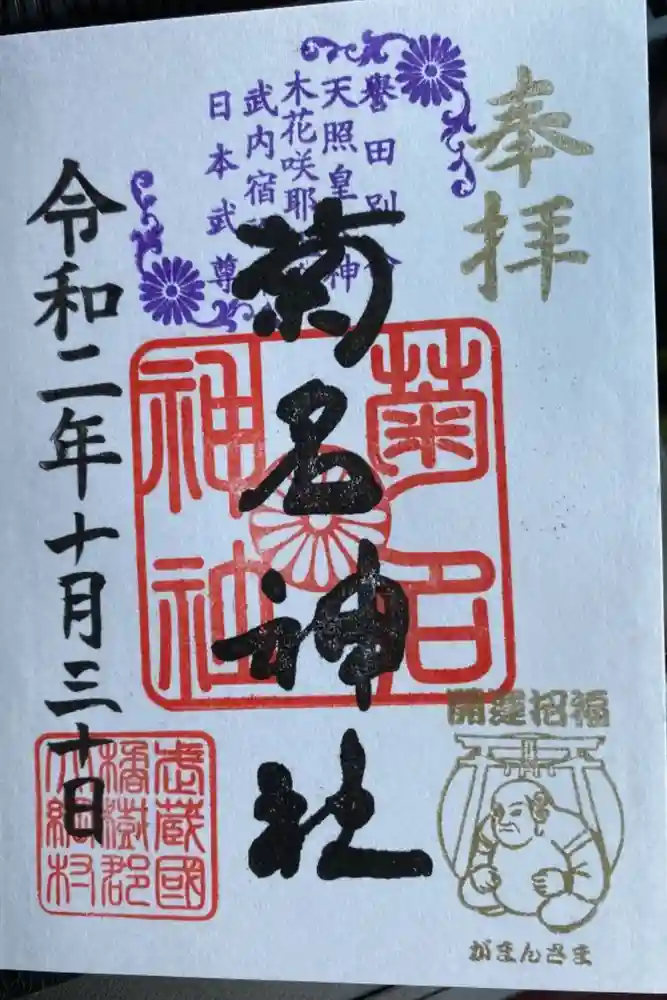 奉拝
譽田別命
天照皇大神
木花咲耶
武内宿
日本武尊
菊名神社
令和二年十月三十日
菊名
神社
開運招福
がまんさま
武蔵國
橘樹郡
大綱村